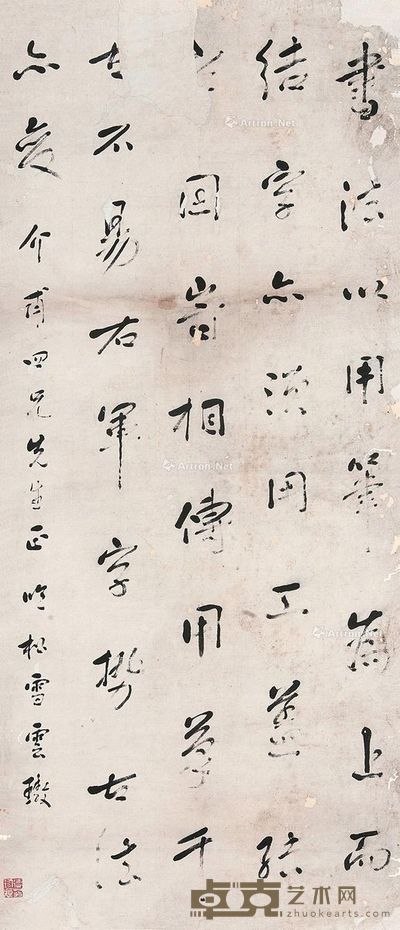 書法以用筆為上而
結字亦須用工蓋結
囙旹相傳用筆千
古不易右軍字勢古法
亦變 介甫四兄先生正 松雪雲璈
Artron.Net
Artron.Net
Artron.Net
卓克艺术网
zhuokearts.com